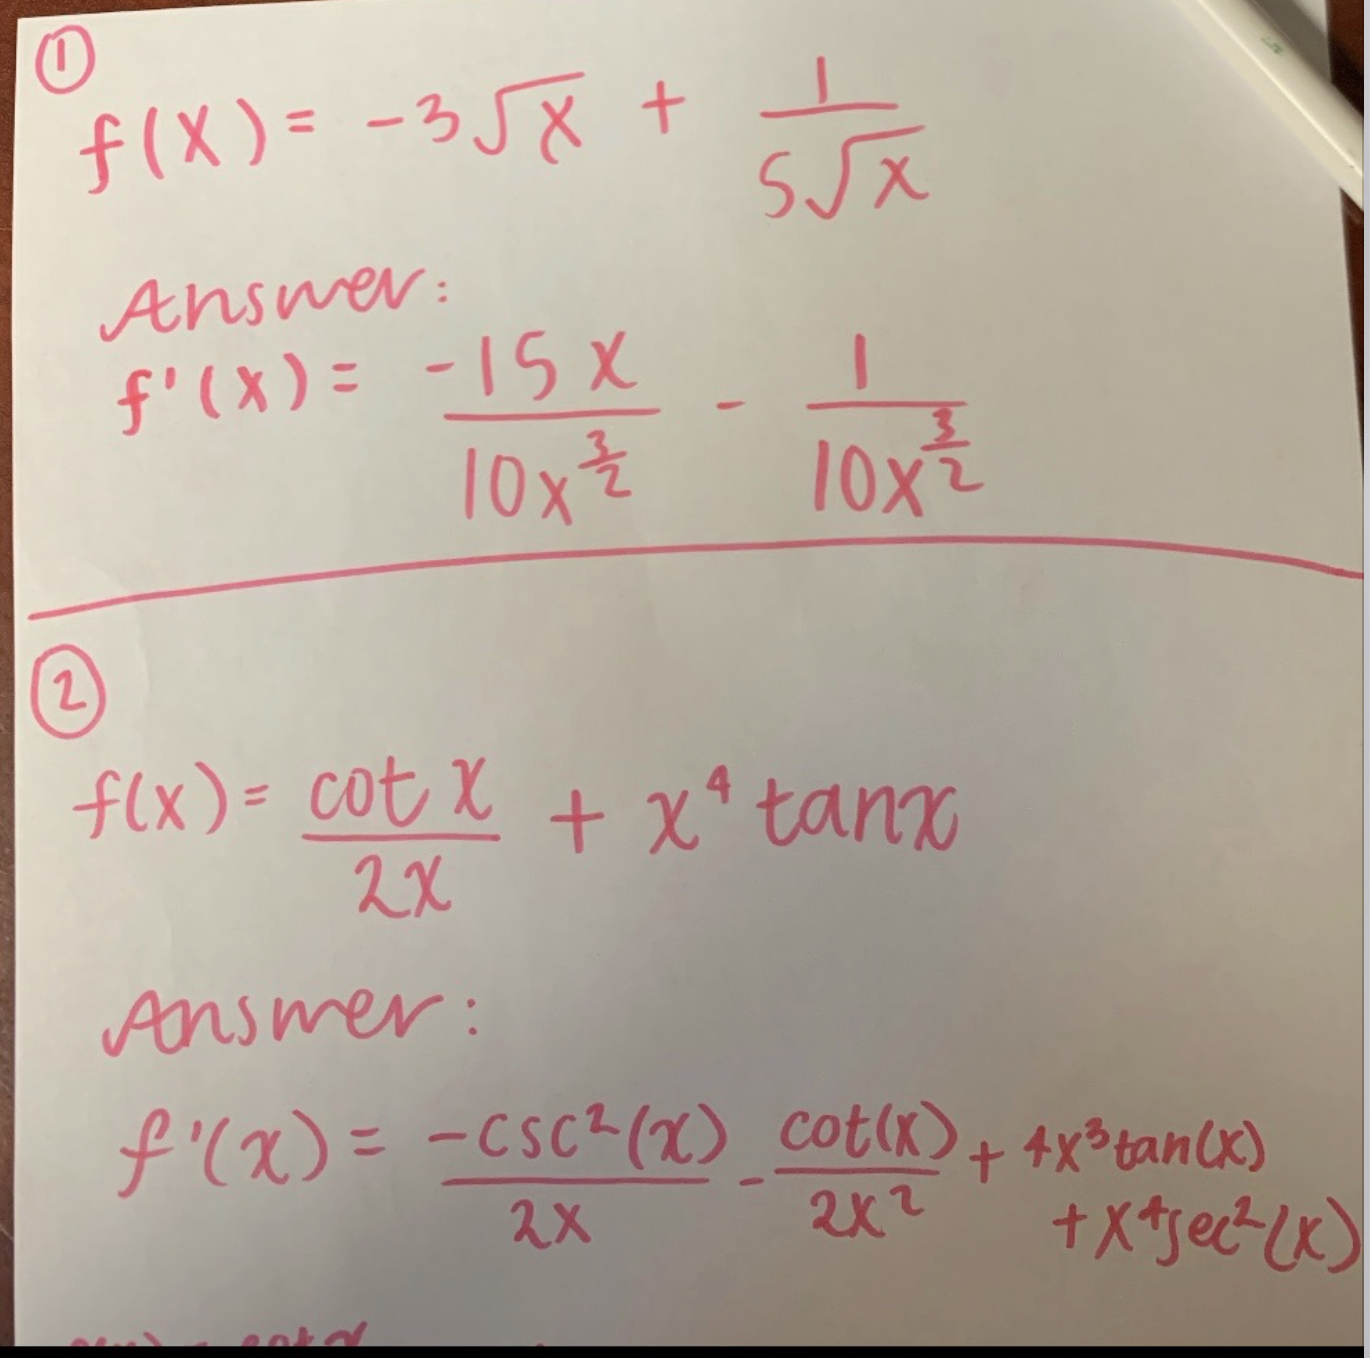 ①
f(x) = -3√x + 1/(5√x)
Answer:
f'(x) = -15x/(10x^(3/2)) - 1/(10x^(3/2))
②
f(x) = cot x/(2x) + x⁴ tanx
Answer:
f'(x) = -csc²(x)/(2x) - cot(x)/(2x²) + 4x³tan(x)
+ x⁴sec²(x)